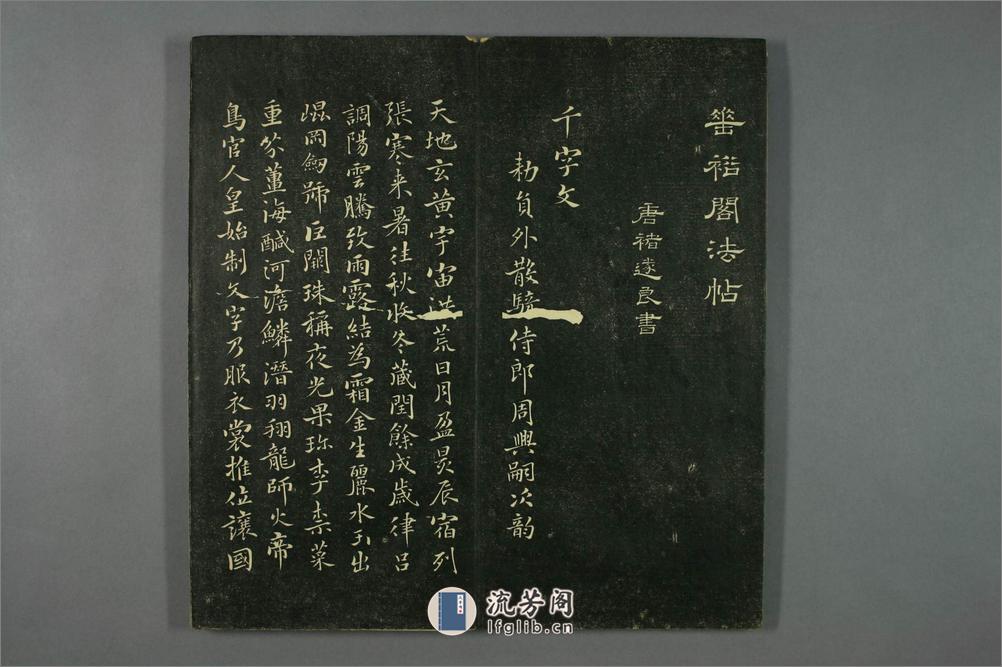 垂裕閣法帖
唐褚遂良書
千字文
勑員外散騎侍郎周興嗣次韵
天地玄黄宇宙洪荒日月盈昃辰宿列
張寒来暑往秋收冬藏閏餘成歲律吕
調陽雲騰致雨露結為霜金生麗水玉出
崐岡劒號巨闕珠稱夜光果珎李柰菜
重芥薑海醎河澹鱗潛羽翔龍師火帝
鳥官人皇始制文字乃服衣裳推位讓國
流芳阁
lfglib.cn